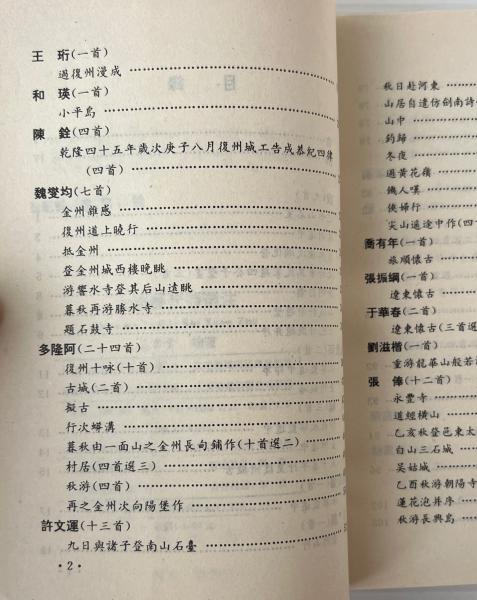 王　珩(一首)
過復州漫成
和　瑛(一首)
小平島
陳　銓(四首)
乾隆四十五年歲次庚子八月復州城工告成恭紀四律
(四首)
魏燮均(七首)
金州雜感
復州道上曉行
抵金州
登金州城西樓晚眺
游響水寺登其后山遠眺
暮秋再游勝水寺
題石鼓寺
多隆阿(二十四首)
復州十咏(十首)
古城(二首)
擬古
行次蟒溝
暮秋由一面山之金州長句鋪作(十首選二)
村居(四首選三)
秋游(四首)
再之金州次向陽堡作
許文運(十三首)
九日與諸子登南山石臺
·2·
秋日赴河東
山居自遣仿劍南詩
山中
釣歸
冬夜
過黃花嶺
饑人嘆
俠婦行
尖山遁逵中作(四
喬有年(一首)
旅順懷古
張振綱(一首)
遼東懷古
于華春(二首)
遼東懷古(三首選
劉滋楷(一首)
重游龍華山般若
張　俸(十二首)
永豐寺
道經橫山
乙亥秋登邑東太
白山三石城
吴姑城
乙酉秋游朝陽寺
蓮花泡并序
秋游長興島